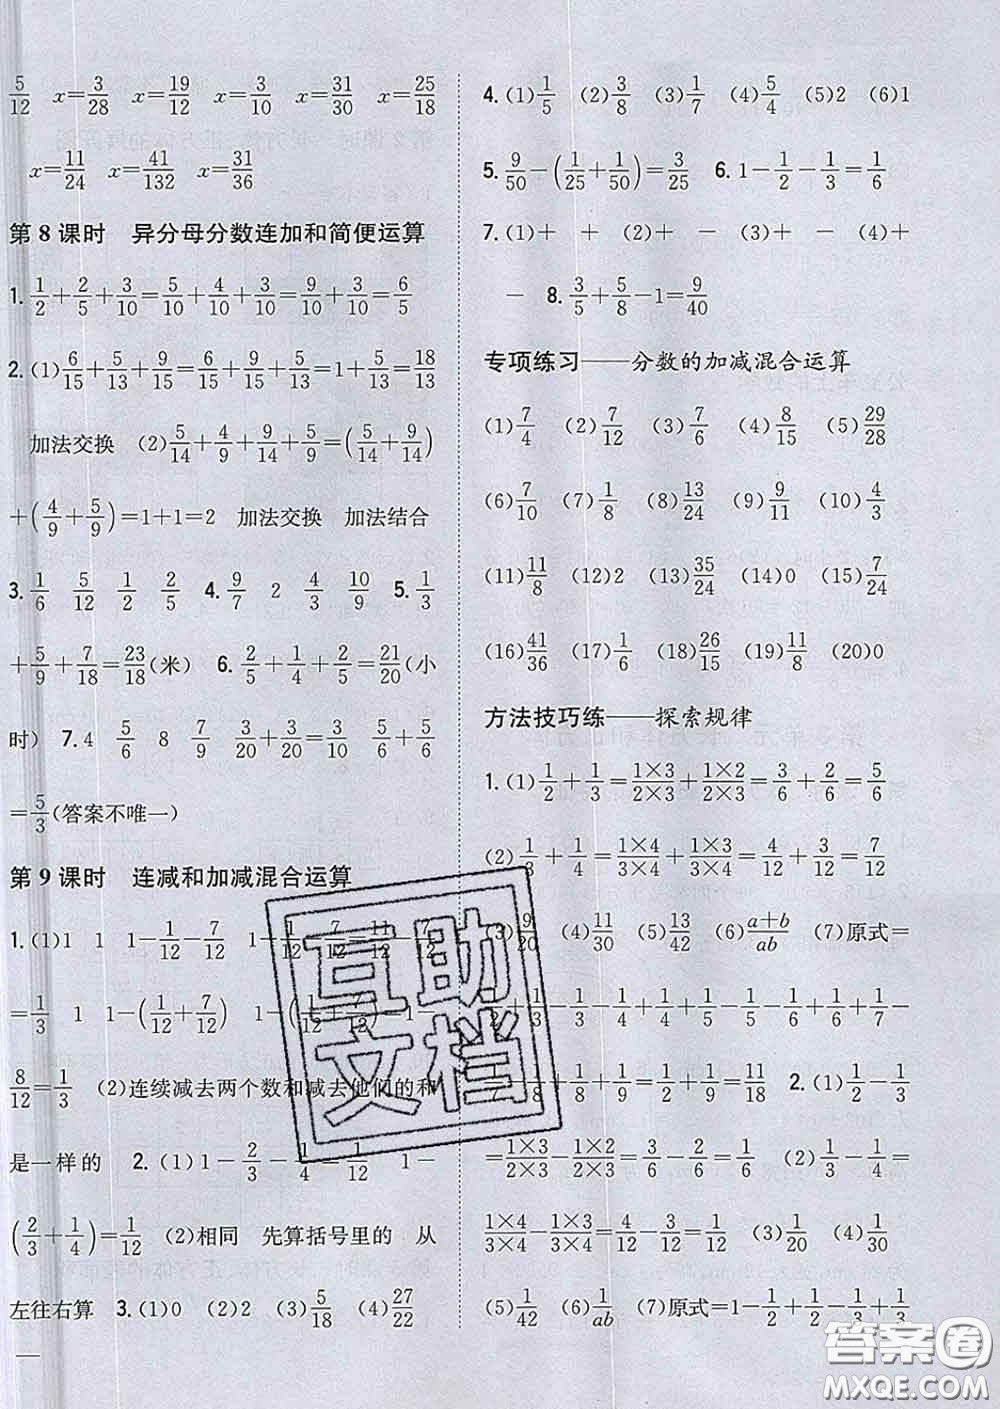 5/12 x=3/28 x=19/12 x=3/10 x=31/30 x=25/18
x=11/24 x=41/132 x=31/36
第 8 课时 异分母分数连加和简便运算
1. 1/2+2/5+3/10=5/10+4/10+3/10=9/10+3/10=6/5
2. (1)6/15+5/13+9/15=6/15+9/15+5/13=1+5/13=18/13
加法交换 (2)5/14+4/9+9/14+5/9=(5/14+9/14)
+(4/9+5/9)=1+1=2 加法交换 加法结合
3. 1/6 5/12 1/2 2/5 4. 9/7 2 4/3 10/9 5. 1/3
+5/9+7/18=23/18(米) 6. 2/5+1/4+2/5=21/20(小
时) 7. 4 5/6 8 7/9 3/20+3/20=3/10 5/6+5/6
=5/3(答案不唯一)
第 9 课时 连减和加减混合运算
1. (1)1 1 1-1/12-7/12 1-1/12-7/12=11/12-7/12
=1/3 1 1-(1/12+7/12) 1-(1/12+7/12)=1-
8/12=1/3 (2)连续减去两个数和减去他们的和
是一样的 2. (1)1-2/3-1/4=1/12 1-
(2/3+1/4)=1/12 (2)相同 先算括号里的 从
左往右算 3. (1)0 (2)2 (3)5/18 (4)27/22
4. (1)1/5 (2)3/8 (3)1/7 (4)5/4 (5)2 (6)1
5. 9/50-(1/25+1/50)=3/25 6. 1-1/2-1/3=1/6
7. (1)+ + (2)+ - (3)+ - (4)+
- 8. 3/5+5/8-1=9/40
专项练习——分数的加减混合运算
(1)7/4 (2)7/12 (3)7/6 (4)8/15 (5)29/28
(6)7/10 (7)1/8 (8)13/24 (9)9/11 (10)4/3
(11)11/8 (12)2 (13)35/24 (14)0 (15)7/24
(16)41/36 (17)1/6 (18)26/15 (19)11/8 (20)0
方法技巧练——探索规律
1. (1)1/2+1/3=1×3/2×3+1×2/2×3=3/6+2/6=5/6
(2)1/3+1/4=1×4/3×4+1×3/3×4=4/12+3/12=7/12
(3)9/20 (4)11/30 (5)13/42 (6)a+b/ab (7)原式=
1/2+1/3-1/3-1/4+1/4+1/5-1/5-1/6+1/6+1/7-
1/8+1/8+1/9=1/2+1/9=11/18 2. (1)1/2-1/3
=1×3/2×3-1×2/2×3=3/6-2/6=1/6 (2)1/3-1/4=
1×4/3×4-1×3/3×4=4/12-3/12=1/12 (3)1/20 (4)1/30
(5)1/42 (6)1/ab (7)原式=1-1/2+1/2-1/3+
互助
文档
答案圈
MXQE.COM